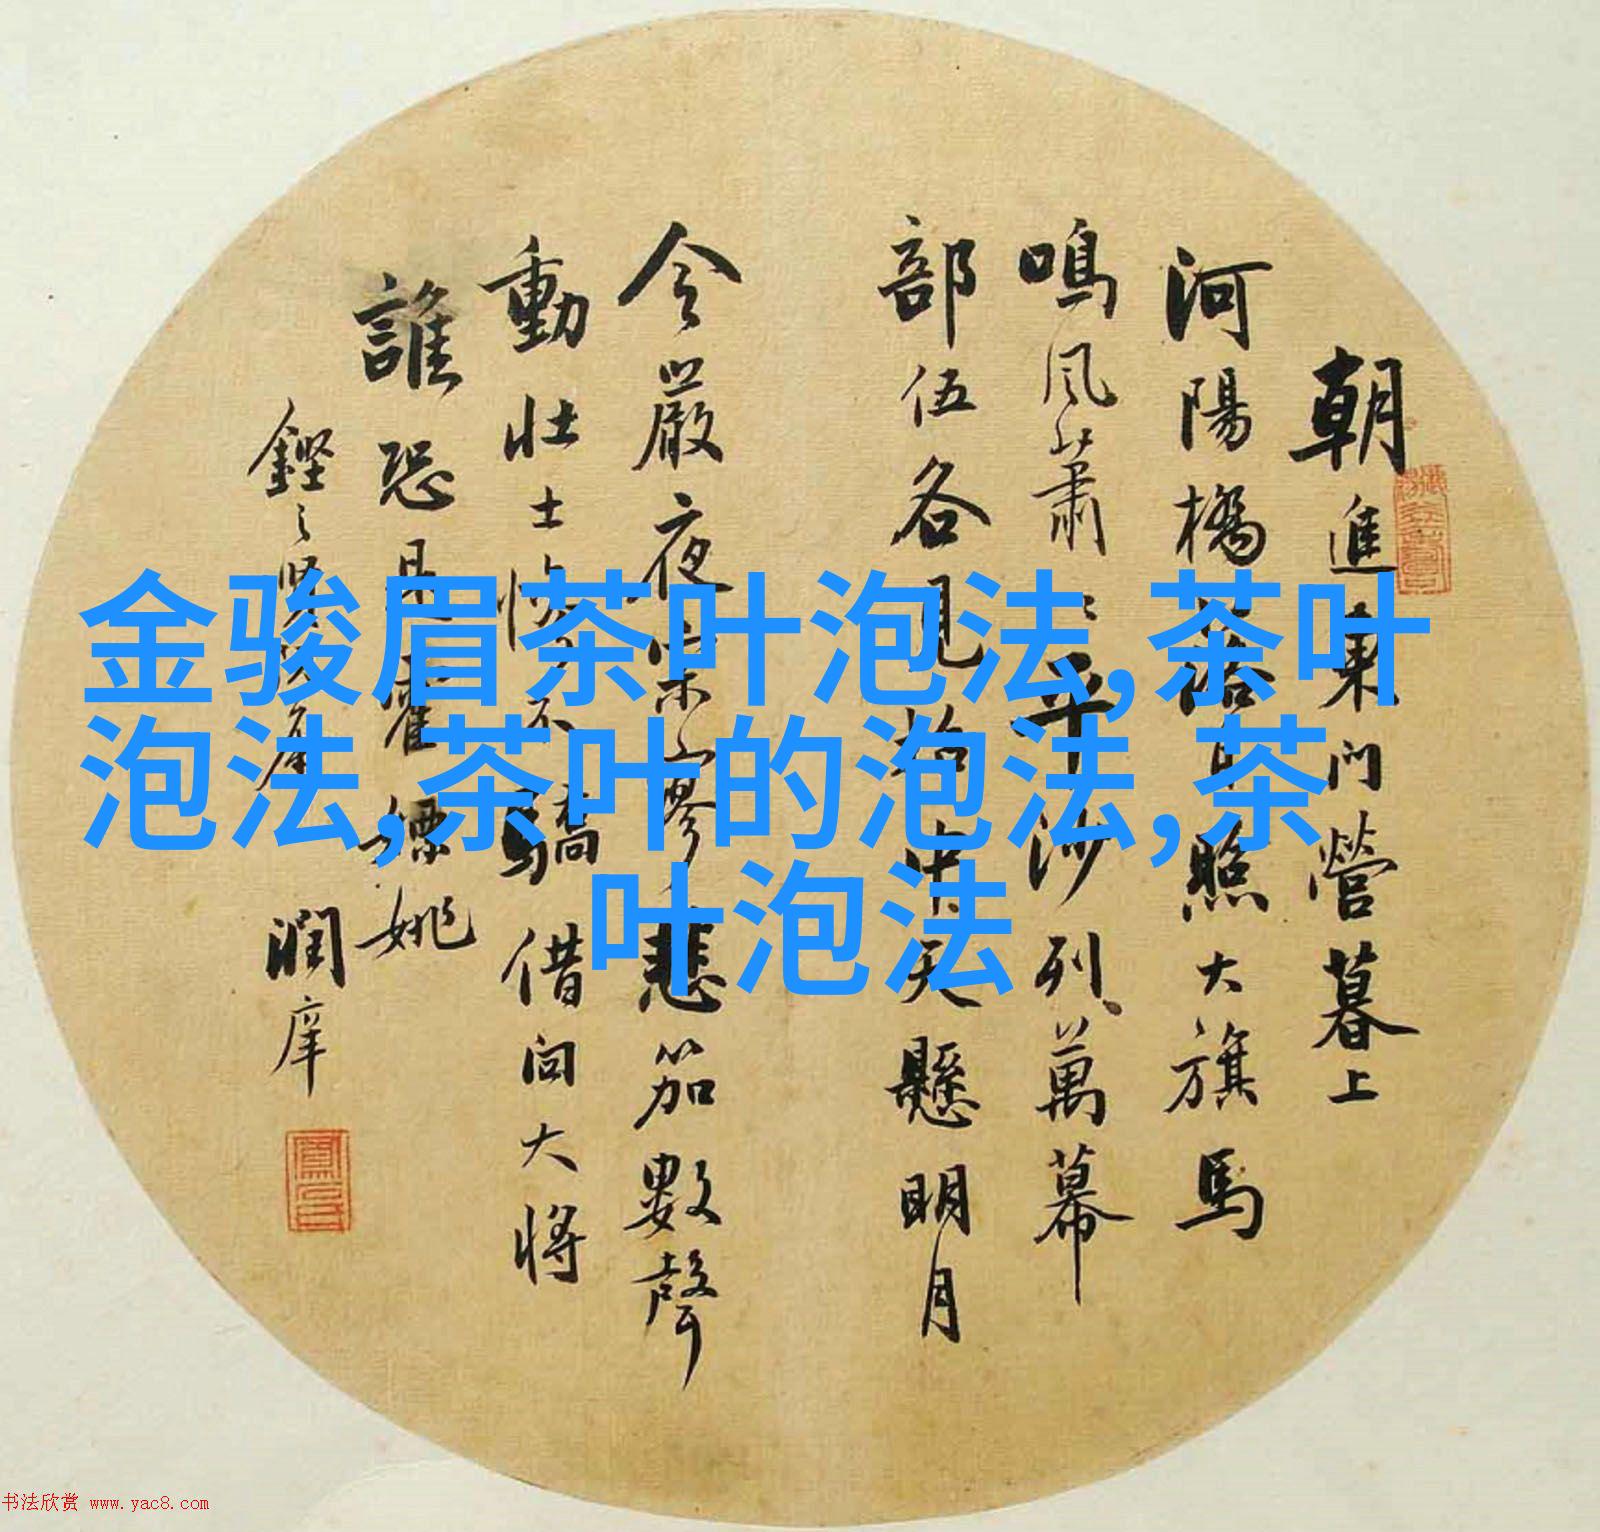 朝進東門營暮上
河陽橋落日照大旗馬
鳴風蕭〻平沙列萬幕
部伍各見招中天懸明月
令嚴夜寂寥悲笳數聲
動壯士慘不驕借問大將
誰恐是霍嫖姚
潤庠
金骏眉茶叶泡法,茶叶
泡法,茶叶的泡法,茶
叶泡法
书法欣赏 www.yac8.com